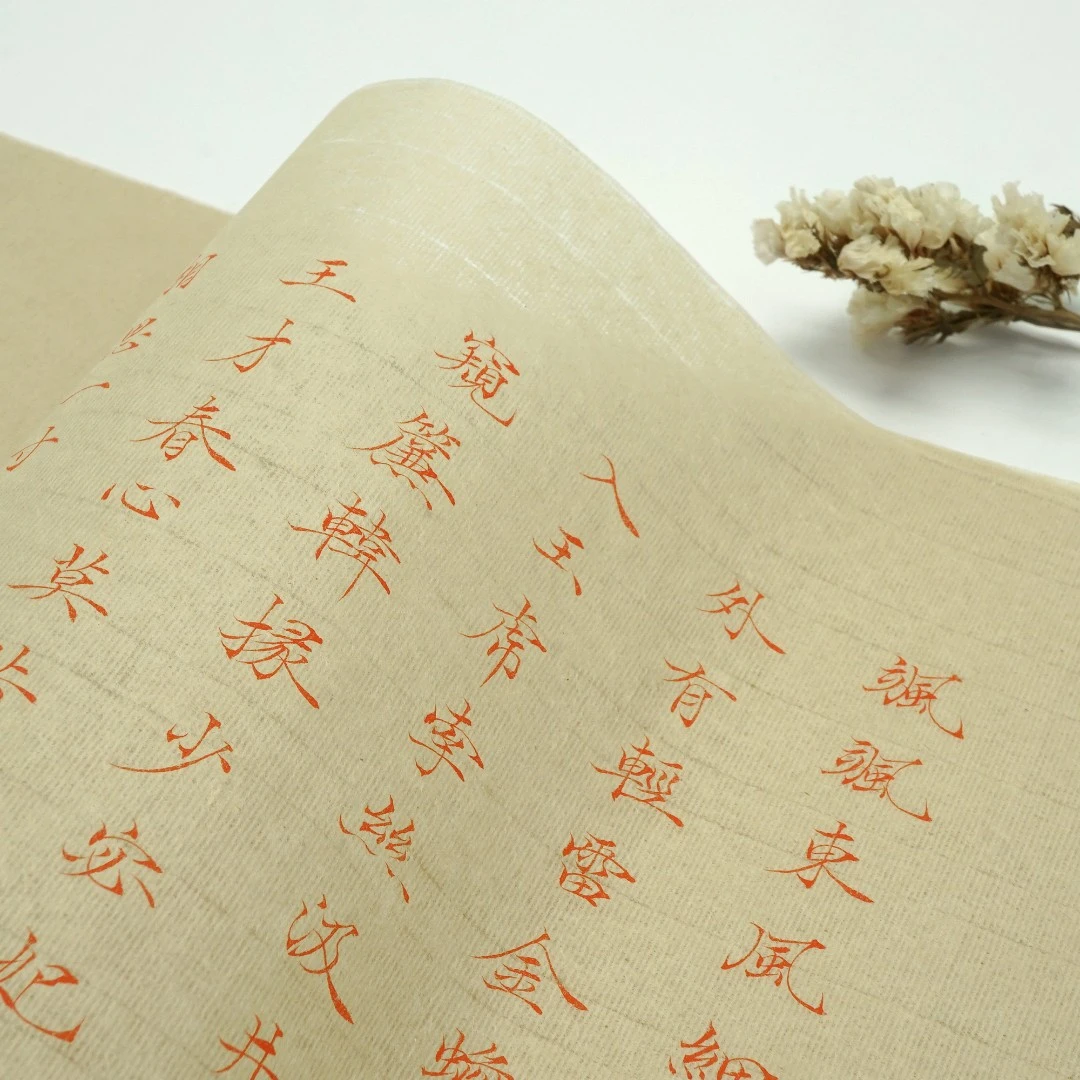 颯颯東風細
外有輕雷金蟾
入玉虎牽絲汲井
窺簾韓掾少宓妃
王才春心莫共
一寸